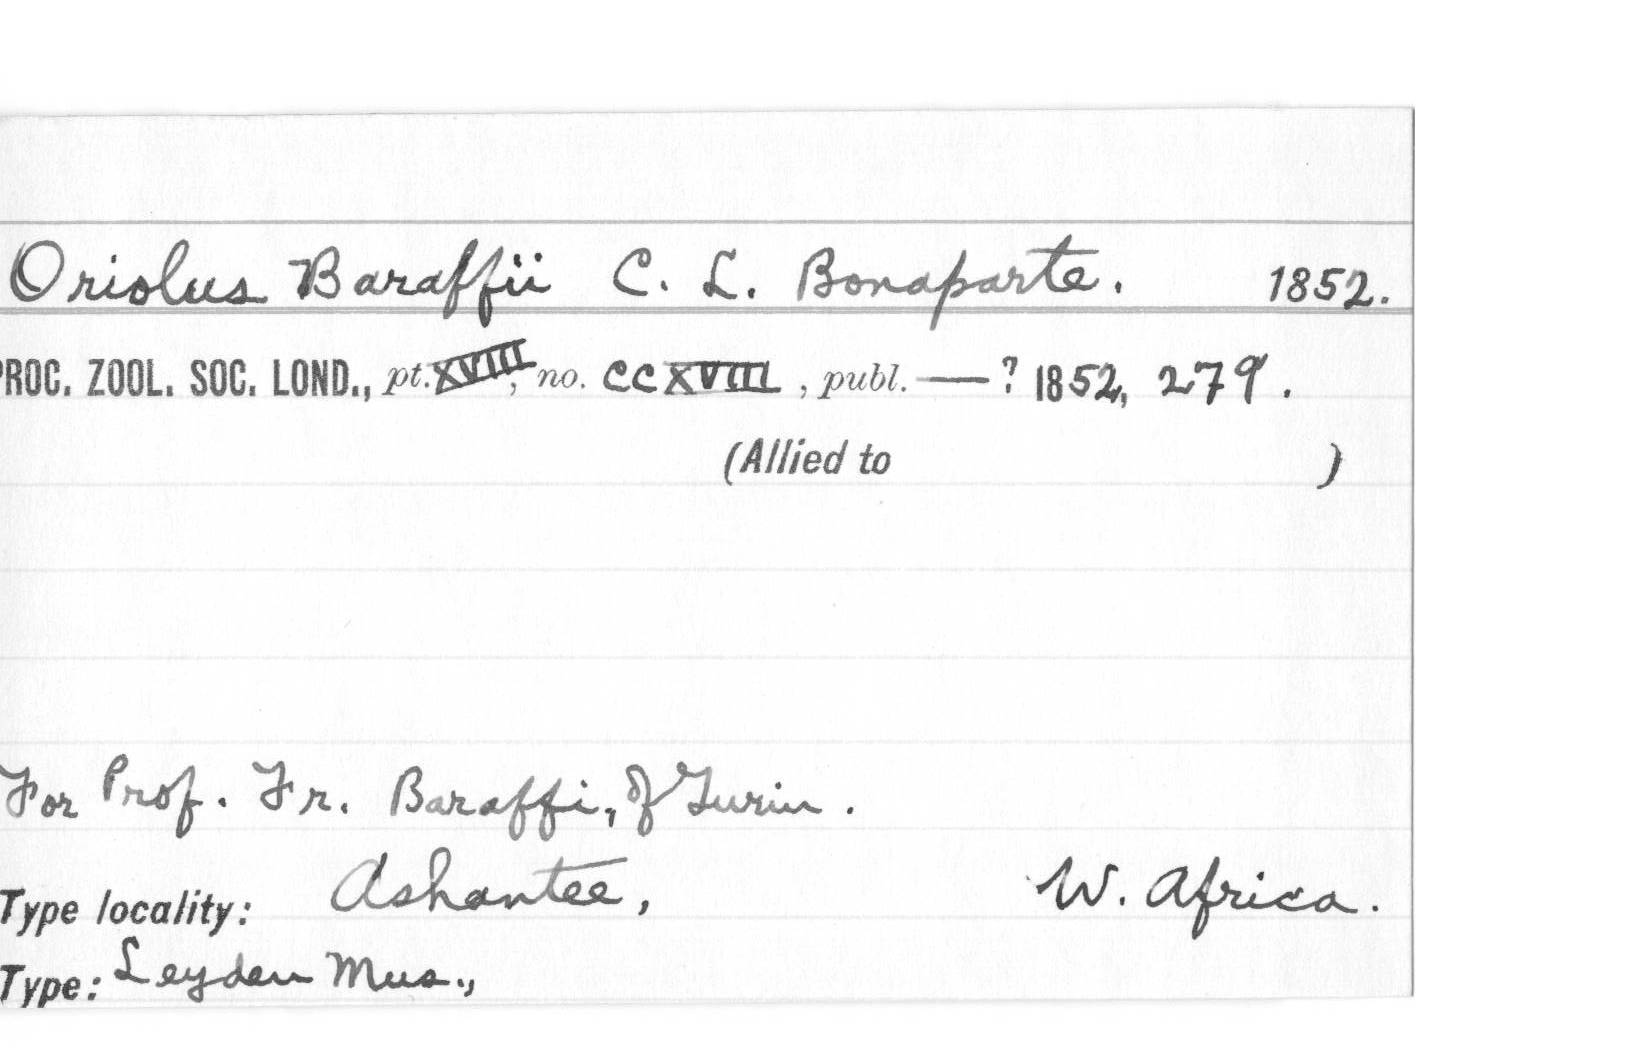 Oriolus Baraffii C. L. Bonaparte. 1852.
PROC. ZOOL. SOC. LOND., pt. XVIII, no. CCXVIII, publ. — ? 1852, 279.
(Allied to )
For Prof. Fr. Baraffi, of Turin.
Type locality: Ashantee, W. Africa.
Type: Leyden Mus.,